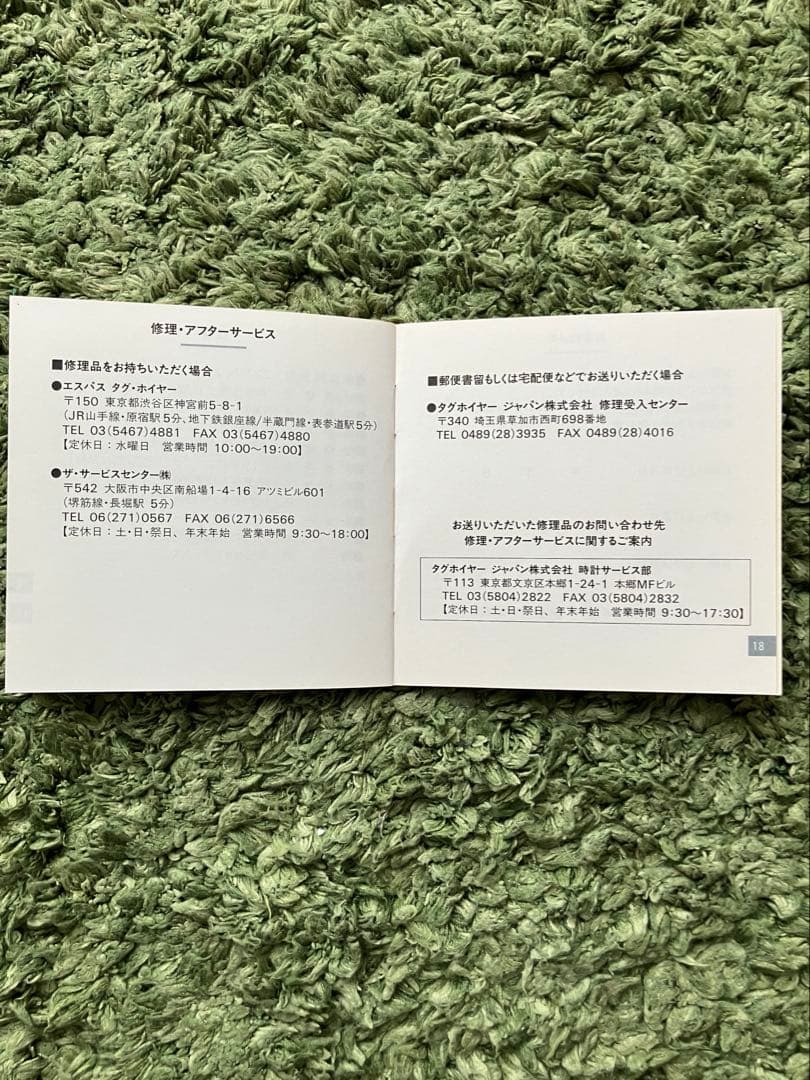 修理・アフターサービス
■修理品をお持ちいただく場合
●エスパス タグ・ホイヤー
〒150 東京都渋谷区神宮前5-8-1
(JR山手線・原宿駅5分、地下鉄銀座線/半蔵門線・表参道駅5分)
TEL 03(5467)4881 FAX 03(5467)4880
【定休日：水曜日 営業時間 10:00〜19:00】
●ザ・サービスセンター㈱
〒542 大阪市中央区南船場1-4-16 アツミビル601
(堺筋線・長堀駅 5分)
TEL 06(271)0567 FAX 06(271)6566
【定休日：土・日・祭日、年末年始 営業時間 9:30〜18:00】
■郵便書留もしくは宅配便などでお送りいただく場合
●タグホイヤー ジャパン株式会社 修理受入センター
〒340 埼玉県草加市西町698番地
TEL 0489(28)3935 FAX 0489(28)4016
お送りいただいた修理品のお問い合わせ先
修理・アフターサービスに関するご案内
タグホイヤー ジャパン株式会社 時計サービス部
〒113 東京都文京区本郷1-24-1 本郷MFビル
TEL 03(5804)2822 FAX 03(5804)2832
【定休日：土・日・祭日、年末年始 営業時間 9:30〜17:30】
18